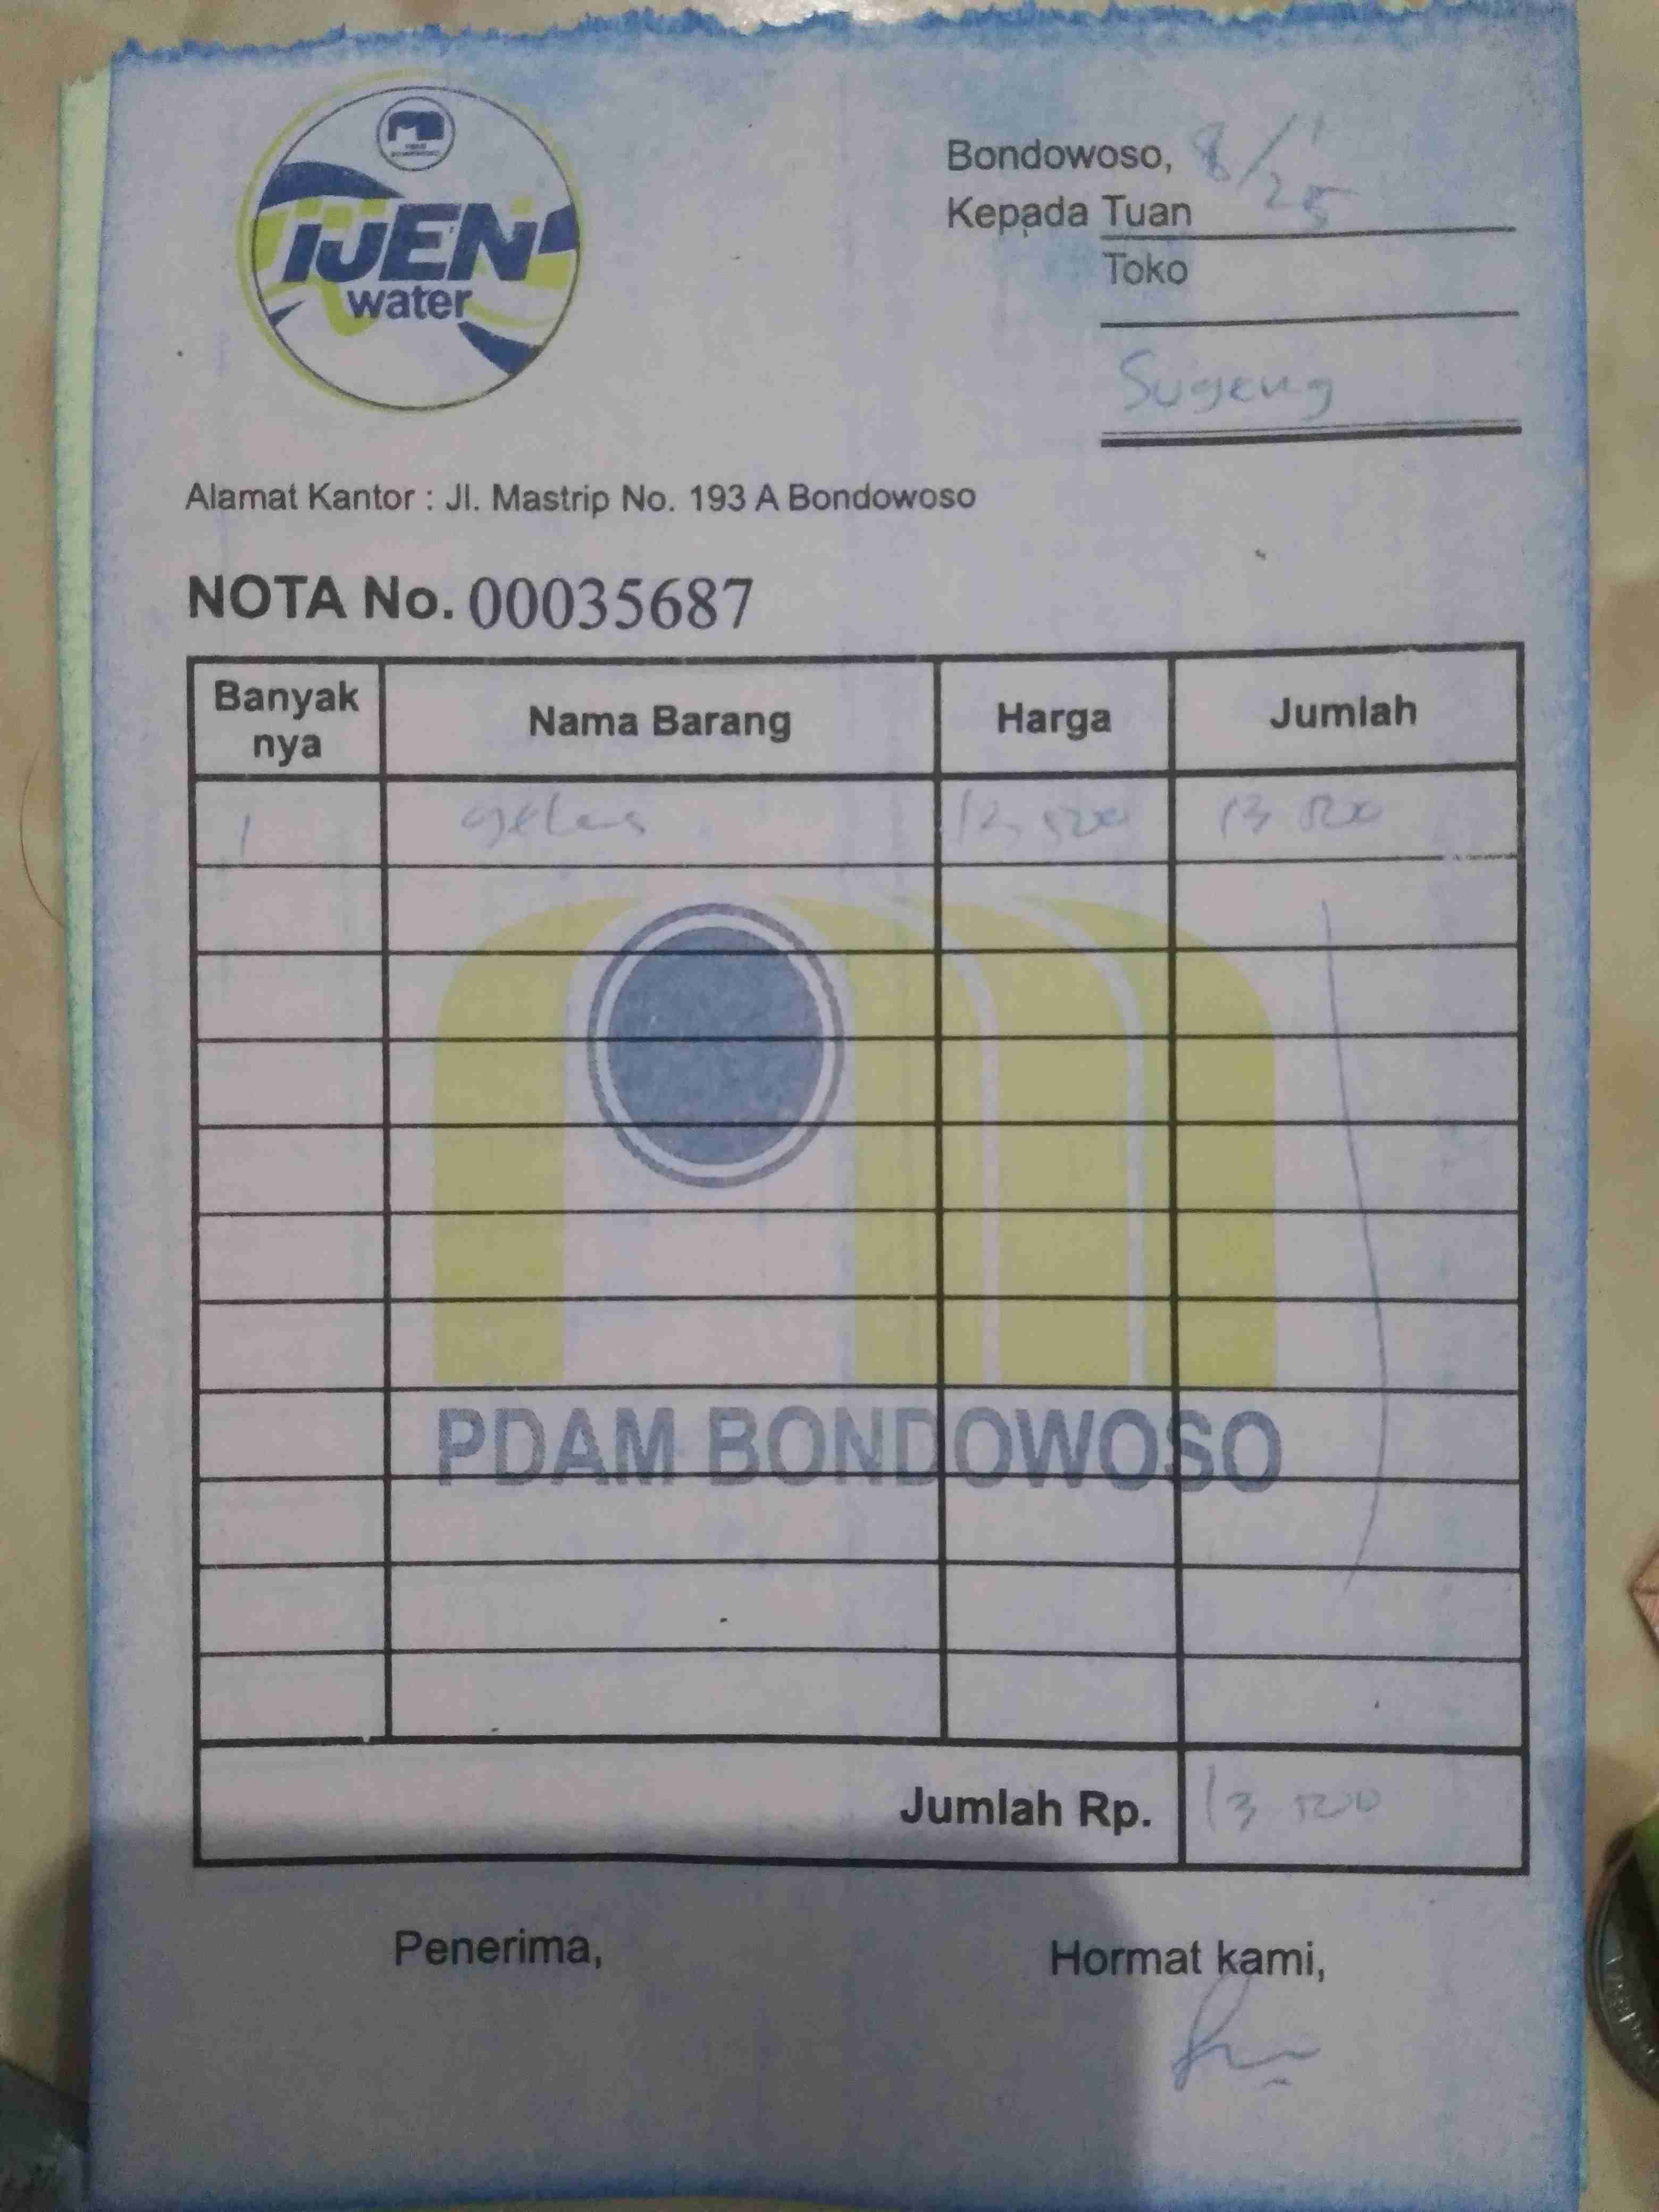 IJEN
water
Bondowoso, 8/1
25
Kepada Tuan
Toko
Sugeng
Alamat Kantor : Jl. Mastrip No. 193 A Bondowoso
NOTA No. 00035687
Banyak nya Nama Barang Harga Jumlah
1 gelas 13 500 13 500
PDAM BONDOWOSO
Jumlah Rp. 13 500
Penerima, Hormat kami,